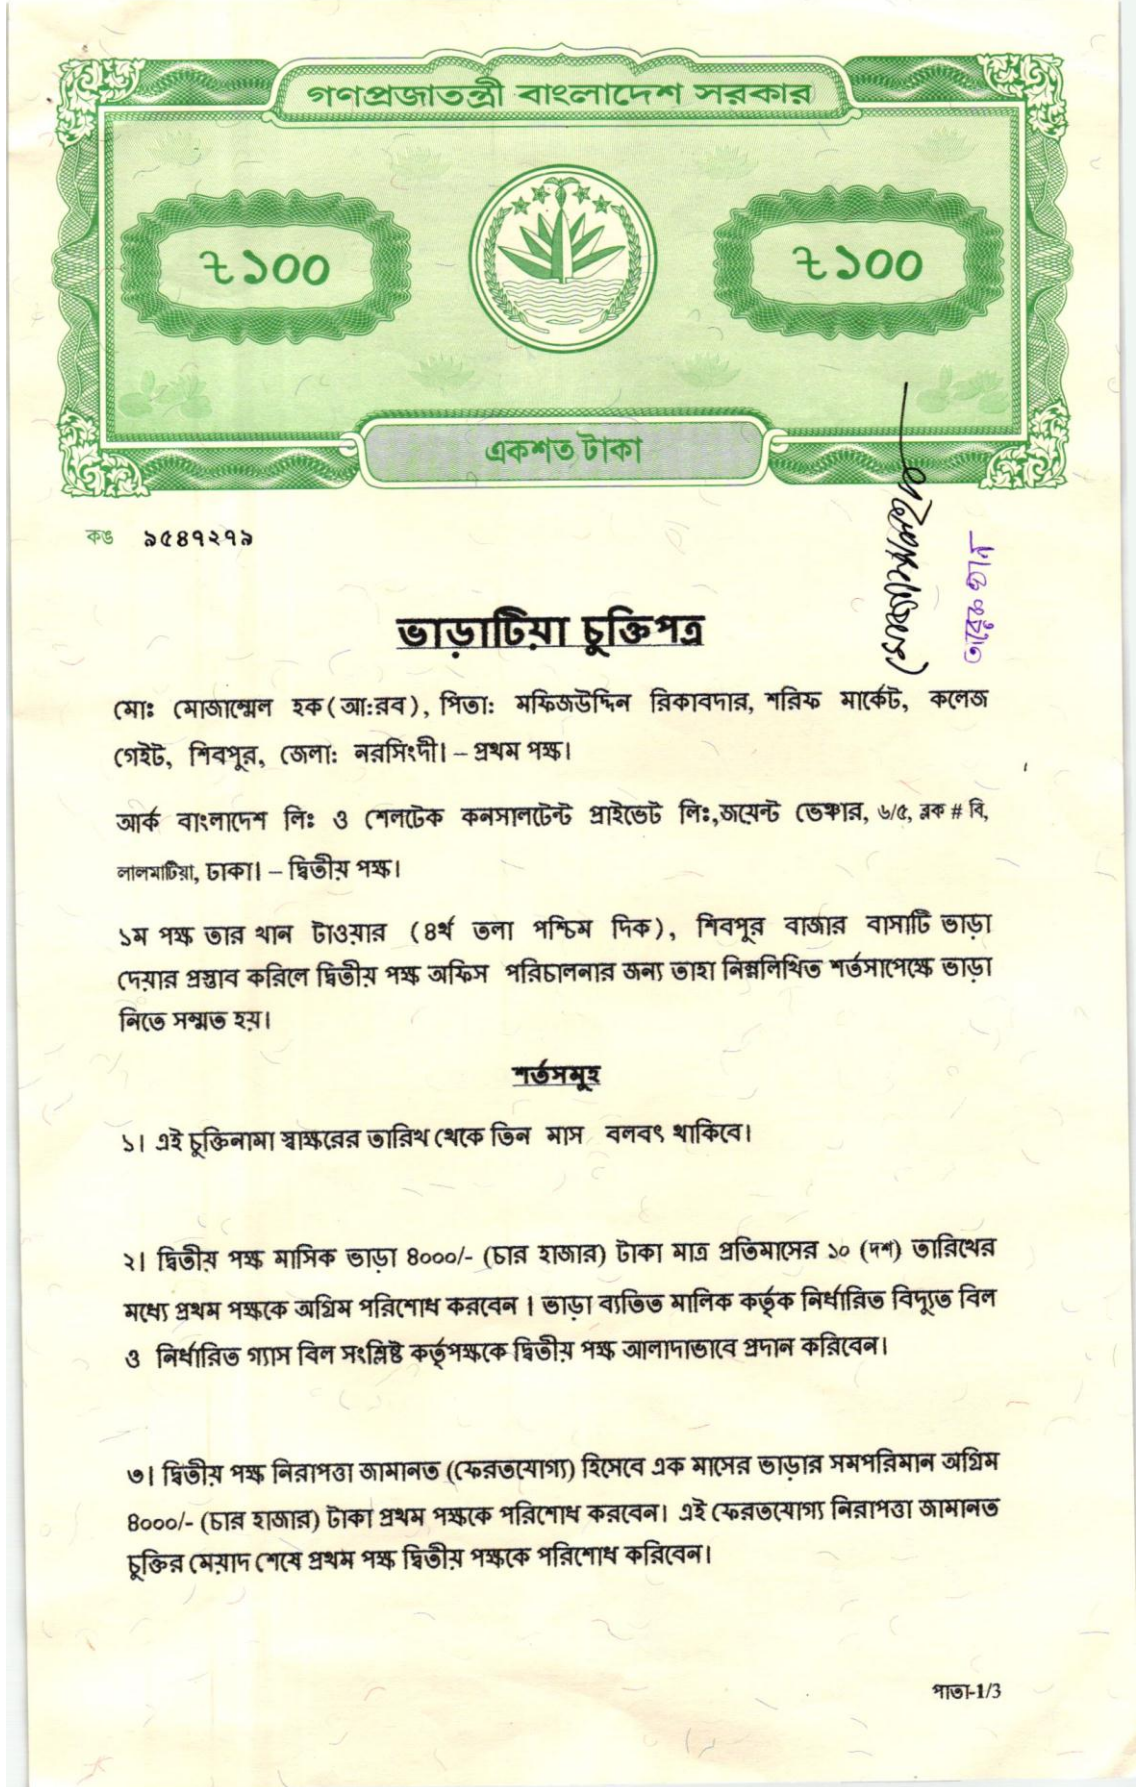 গণপ্রজাতন্ত্রী বাংলাদেশ সরকার
৳১০০
৳১০০
একশত টাকা
কঙ ৯৫৪৭২৭৯
ভাড়াটিয়া চুক্তিপত্র
মোঃ মোজাম্মেল হক(আ:রব), পিতা: মফিজউদ্দিন রিকাবদার, শরিফ মার্কেট, কলেজ
গেইট, শিবপুর, জেলা: নরসিংদী। – প্রথম পক্ষ।
আর্ক বাংলাদেশ লিঃ ও শেলটেক কনসালটেন্ট প্রাইভেট লিঃ,জয়েন্ট ভেঞ্চার, ৬/৫, ব্লক # বি,
লালমাটিয়া, ঢাকা। – দ্বিতীয় পক্ষ।
১ম পক্ষ তার খান টাওয়ার (৪র্থ তলা পশ্চিম দিক), শিবপুর বাজার বাসাটি ভাড়া
দেয়ার প্রস্তাব করিলে দ্বিতীয় পক্ষ অফিস পরিচালনার জন্য তাহা নিম্নলিখিত শর্তসাপেক্ষে ভাড়া
নিতে সম্মত হয়।
শর্তসমুহ
১। এই চুক্তিনামা স্বাক্ষরের তারিখ থেকে তিন মাস বলবৎ থাকিবে।
২। দ্বিতীয় পক্ষ মাসিক ভাড়া ৪০০০/- (চার হাজার) টাকা মাত্র প্রতিমাসের ১০ (দশ) তারিখের
মধ্যে প্রথম পক্ষকে অগ্রিম পরিশোধ করবেন । ভাড়া ব্যতিত মালিক কর্তৃক নির্ধারিত বিদ্যুত বিল
ও নির্ধারিত গ্যাস বিল সংশ্লিষ্ট কর্তৃপক্ষকে দ্বিতীয় পক্ষ আলাদাভাবে প্রদান করিবেন।
৩। দ্বিতীয় পক্ষ নিরাপত্তা জামানত (ফেরতযোগ্য) হিসেবে এক মাসের ভাড়ার সমপরিমান অগ্রিম
৪০০০/- (চার হাজার) টাকা প্রথম পক্ষকে পরিশোধ করবেন। এই ফেরতযোগ্য নিরাপত্তা জামানত
চুক্তির মেয়াদ শেষে প্রথম পক্ষ দ্বিতীয় পক্ষকে পরিশোধ করিবেন।
পাতা-1/3